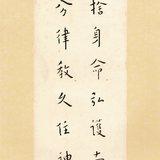 捨身命弘護
分律教久住神